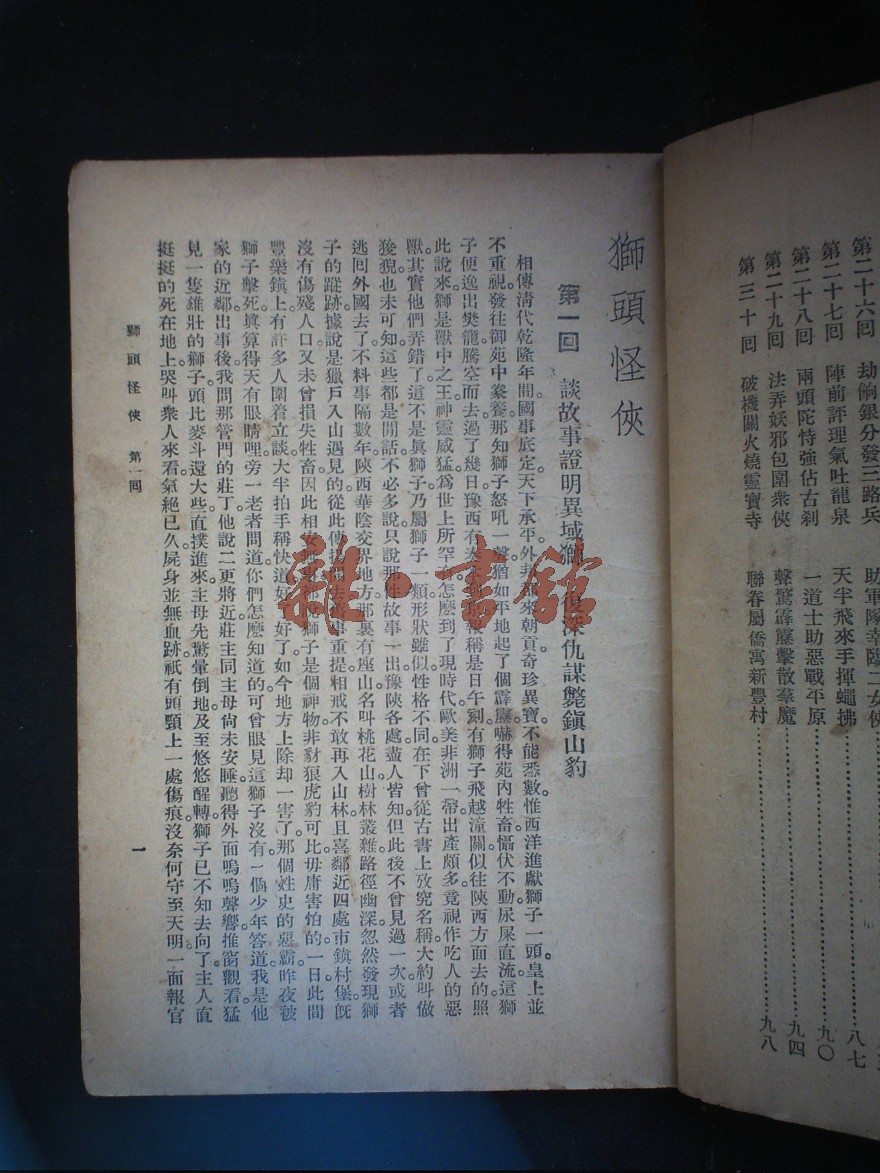 第二十六回　劫餉銀分發三路兵　助軍隊幸臨二女俠
第二十七回　陣前評理氣吐龍泉　天半飛來手揮蠅拂………八七
第二十八回　兩頭陀恃強佔古剎　一道士助惡戰平原………九〇
第二十九回　法弄妖邪包圍衆俠　聲驚霹靂擊散羣魔………九四
第三十回　破機關火燒靈寶寺　聯眷屬僑寓新豐村………九八
獅頭怪俠
第一回　談故事證明異域獅　復深仇謀斃鎮山豹
相傳清代乾隆年間。國事底定。天下承平。外邦都來朝貢。奇珍異寶。不能悉數。惟西洋進獻獅子一頭。皇上並
不重視。發往御苑中豢養。那知獅子怒吼一聲。猶如平地起了個霹靂。嚇得苑內牲畜懾伏不動。尿屎直流。這獅
子便逸出樊籠。騰空而去。過了幾日。豫西有奏報稱是日午刻有獅子飛越潼關。似往陝西方面去的。照
此說來。獅是獸中之王。神靈威猛。爲世上所罕有。怎麼到了現時代。歐美非洲一帶。出產頗多。竟視作吃人的惡
獸。其實他們弄錯了。這不是眞獅子。乃屬獅子一類。形狀雖似。性格不同。在下曾從古書上攷究名稱。大約叫做
狻猊。也未可知。這些都是閒話。不必多說。只說那件故事一出。豫陝各處盡人皆知。但此後不曾見過一次。或者
逃囘外國去了。不料事隔數年。陝西華陰交界地方。那裏有座山。名叫桃花山。樹林叢雜。路徑幽深。忽然發現獅
子的蹤跡。據說是獵戶入山遇見的。從此傳揚開去。故事重提。相戒不敢再入山林。且喜鄰近四處市鎮村堡。旣
沒有傷殘人口。又未曾損失牲畜。因此相安無事。都說獅子是個神物。非豺狼虎豹可比。毋庸害怕的。一日此間
豐樂鎮上。有許多人圍着立談。大半拍手稱快道。好了好了。如今地方上除却一害了。那個姓史的惡霸。昨夜被
獅子擊死。眞算得天有眼睛哩。旁一老者問道。你們怎麼知道的。可曾眼見這獅子沒有。一個少年答道。我是他
家的近鄰。出事後我問那管門的莊丁。他說二更將近。莊主同主母尙未安睡。聽得外面嗚嗚聲響。推窗觀看。猛
見一隻雄壯的獅子。頭比麥斗還大些。直撲進來。主母先驚暈倒地。及至悠悠醒轉。獅子已不知去向了。主人直
挺挺的死在地上。哭叫衆人來看。氣絕已久。屍身並無血跡。祇有頭頸上一處傷痕。沒奈何守至天明。一面報官
獅頭怪俠　第一回
一
雜·書館